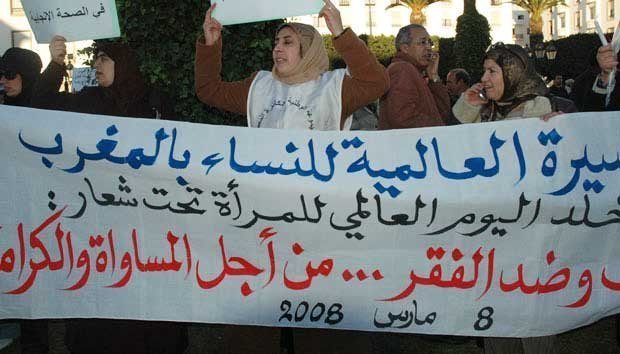 في الصحة الإنجابية
سيرة العالمية للنساء بالمغرب
خلد اليوم العالمي للمرأة تحت شعار:
وضد الفقر ... من أجل المساواة والكرام
8 مارس 2008